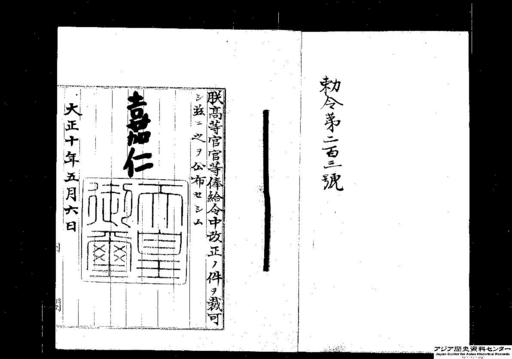 勅令第二百三號
朕高等官官等俸給令中改正ノ件ヲ裁可
シ茲ニ之ヲ公布セシム
嘉仁
天皇
御璽
大正十年五月六日
アジア歴史資料センター
Japan Center for Asian Historical Records